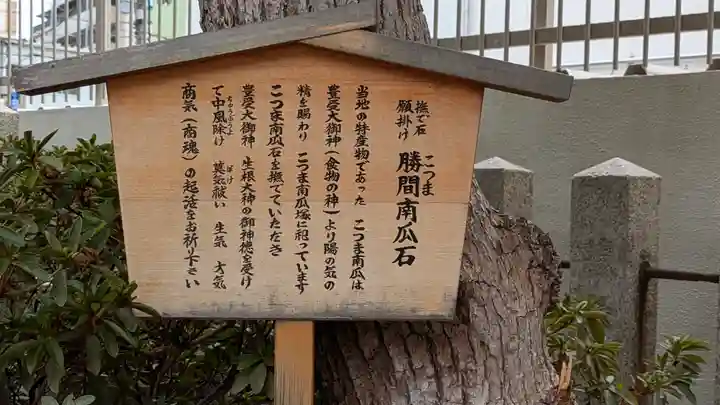 撫で石
願掛け
こつま
勝間南瓜石
当地の特産物であった こつま南瓜は
豊受大御神(食物の神)より陽の気の
精を賜わり こつま南瓜塚に祀っています
こつま南瓜石を撫でていただき
豊受大御神 生根大神の御神徳を受け
ちゅうぶうよ ぼけ
て中風除け 惚気祓い 生気 才気
商気(商魂)の起活をお祈り下さい